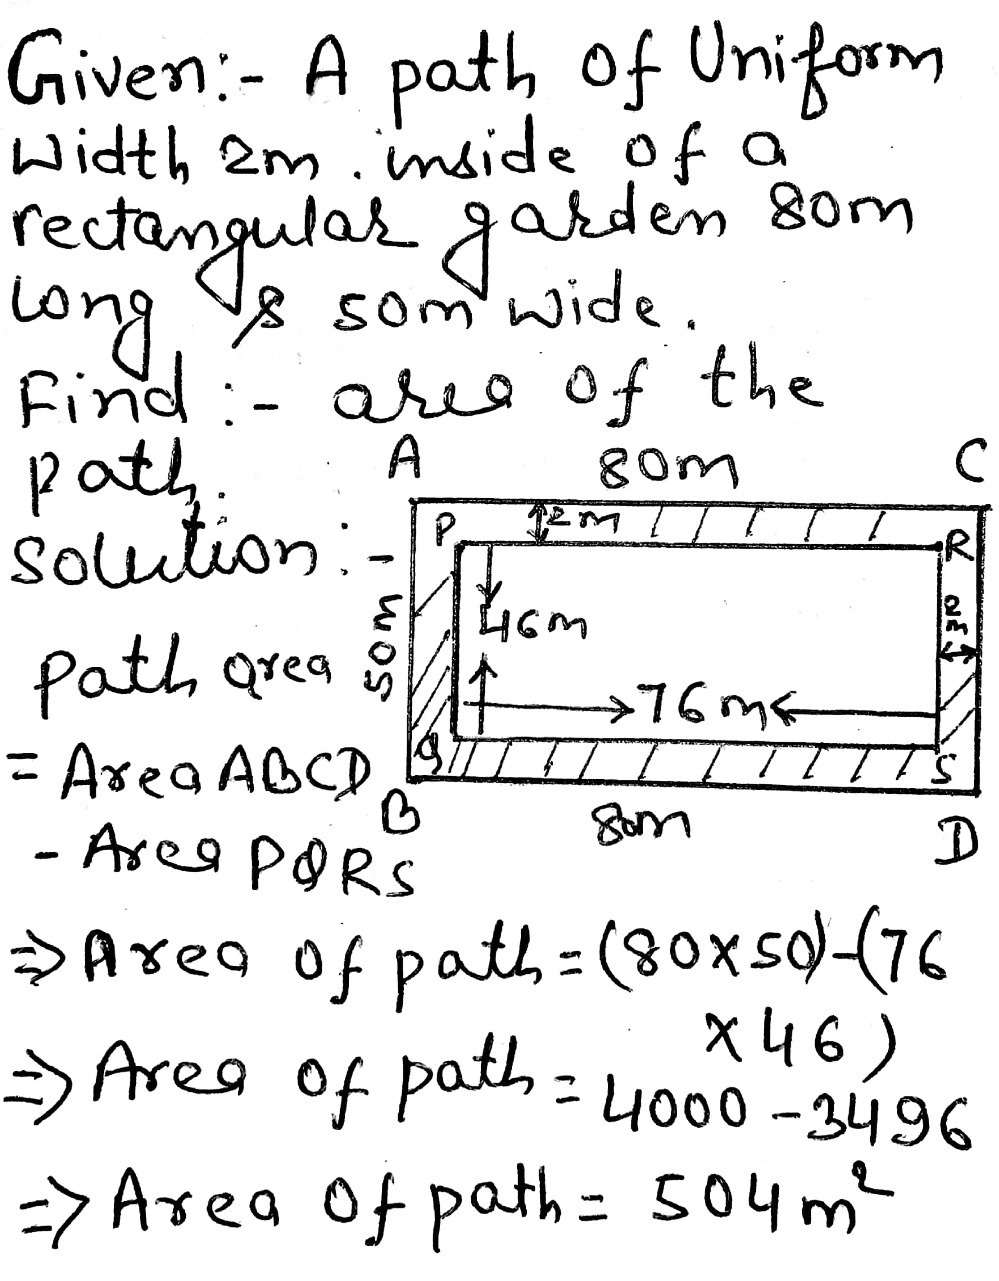 Given:- A path of Uniform
width 2m. inside of a
rectangular garden 80m
long & 50m wide.
Find :- area of the
path.
A 80m C
Solution :-
P 2m R
50m
46m
2m
path area
76m
Q S
= Area ABCD
B 80m D
- Area PQRS
⇒ Area of path = (80x50)-(76
x46)
⇒ Area of path =
4000 - 3496
⇒ Area of path = 504m²